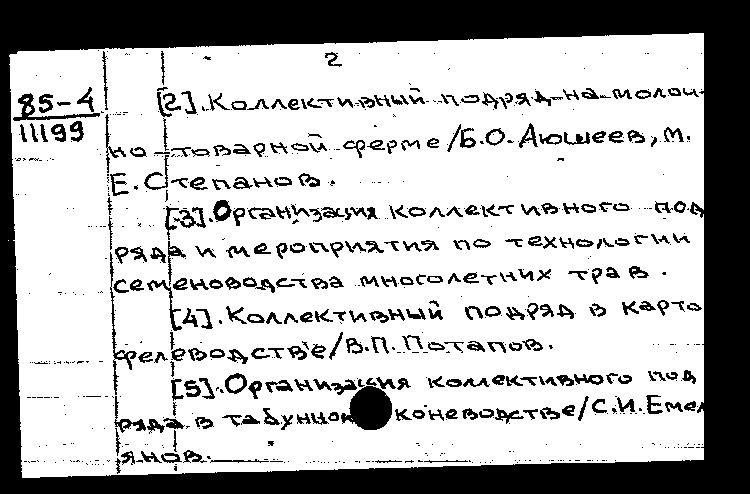 2
85-4
11199
[2]. Коллективный подряд на молоч-
но-товарной ферме/Б.О. Аюшеев, М.
Е. Степанов.
[3]. Организация коллективного под
ряда и мероприятия по технологии
семеноводства многолетних трав.
[4]. Коллективный подряд в карто
фелеводстве/В.П. Потапов.
[5]. Организация коллективного под
ряда в табунном коневодстве/С.И. Емел
янов.